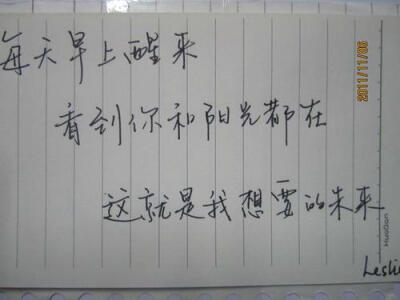 每天早上醒来
看到你和阳光都在
这就是我想要的未来
Leslie
2011/11/06